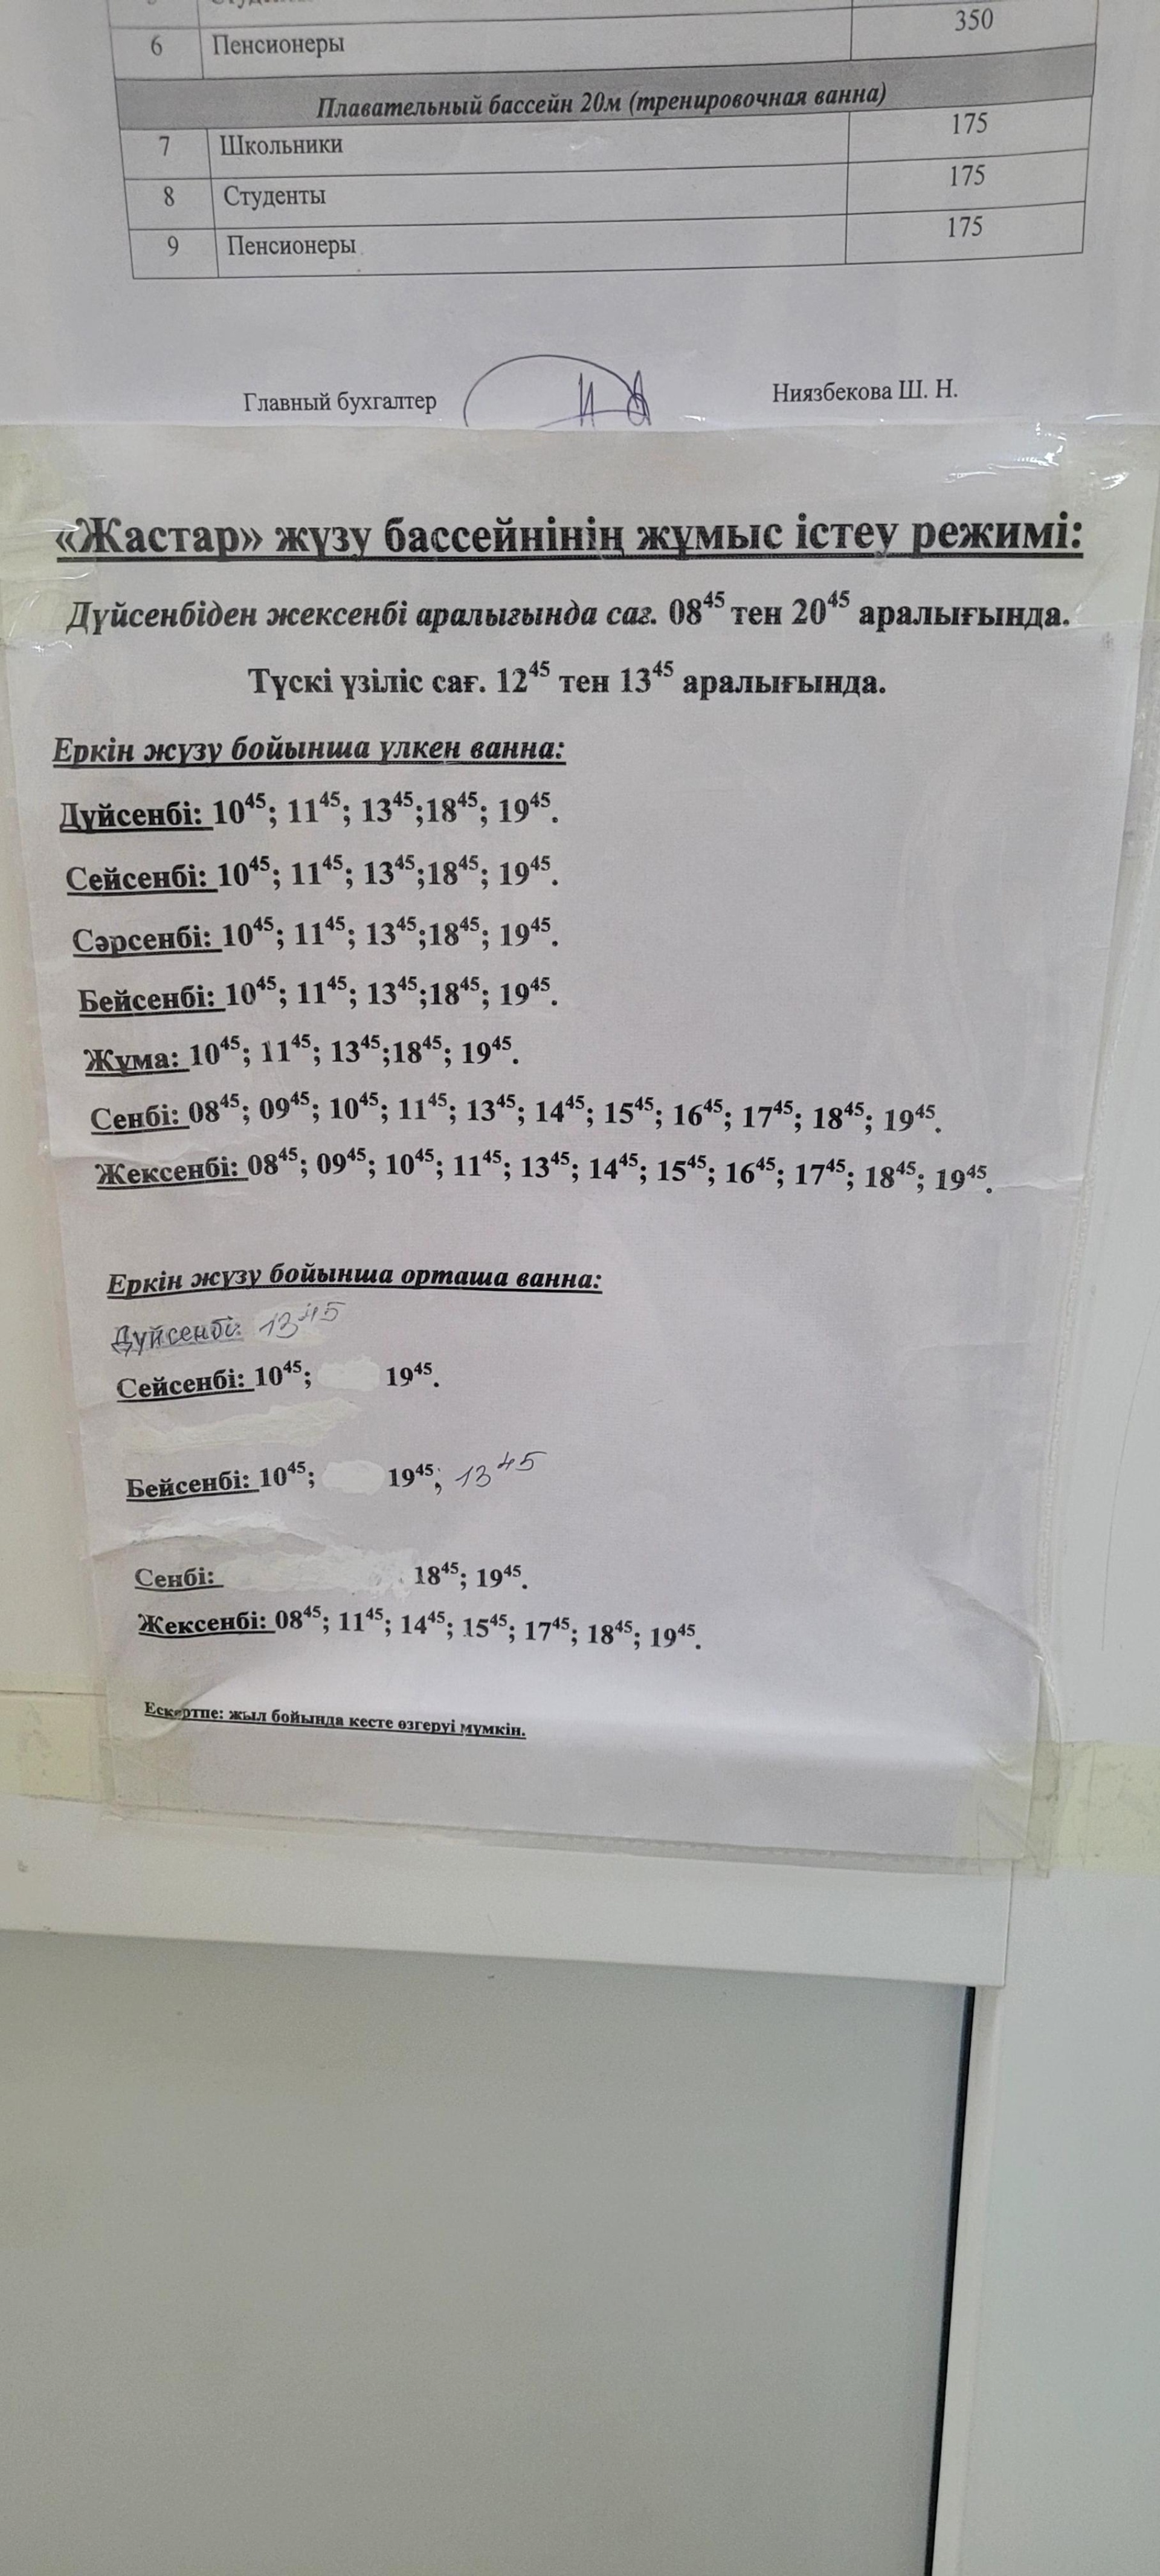 6 Пенсионеры 350
Плавательный бассейн 20м (тренировочная ванна)
7 Школьники 175
8 Студенты 175
9 Пенсионеры 175
Главный бухгалтер Ниязбекова Ш. Н.
«Жастар» жүзу бассейнінің жұмыс істеу режимі:
Дүйсенбіден жексенбі аралығында сағ. 08⁴⁵ тен 20⁴⁵ аралығында.
Түскі үзіліс сағ. 12⁴⁵ тен 13⁴⁵ аралығында.
Еркін жүзу бойынша үлкен ванна:
Дүйсенбі: 10⁴⁵; 11⁴⁵; 13⁴⁵;18⁴⁵; 19⁴⁵.
Сейсенбі: 10⁴⁵; 11⁴⁵; 13⁴⁵;18⁴⁵; 19⁴⁵.
Сәрсенбі: 10⁴⁵; 11⁴⁵; 13⁴⁵;18⁴⁵; 19⁴⁵.
Бейсенбі: 10⁴⁵; 11⁴⁵; 13⁴⁵;18⁴⁵; 19⁴⁵.
Жұма: 10⁴⁵; 11⁴⁵; 13⁴⁵;18⁴⁵; 19⁴⁵.
Сенбі: 08⁴⁵; 09⁴⁵; 10⁴⁵; 11⁴⁵; 13⁴⁵; 14⁴⁵; 15⁴⁵; 16⁴⁵; 17⁴⁵; 18⁴⁵; 19⁴⁵.
Жексенбі: 08⁴⁵; 09⁴⁵; 10⁴⁵; 11⁴⁵; 13⁴⁵; 14⁴⁵; 15⁴⁵; 16⁴⁵; 17⁴⁵; 18⁴⁵; 19⁴⁵.
Еркін жүзу бойынша орташа ванна:
Дүйсенбі: 13⁴⁵
Сейсенбі: 10⁴⁵; 19⁴⁵.
Бейсенбі: 10⁴⁵; 19⁴⁵; 13⁴⁵
Сенбі: 18⁴⁵; 19⁴⁵.
Жексенбі: 08⁴⁵; 11⁴⁵; 14⁴⁵; 15⁴⁵; 17⁴⁵; 18⁴⁵; 19⁴⁵.
Ескертпе: жыл бойында кесте өзгеруі мүмкін.